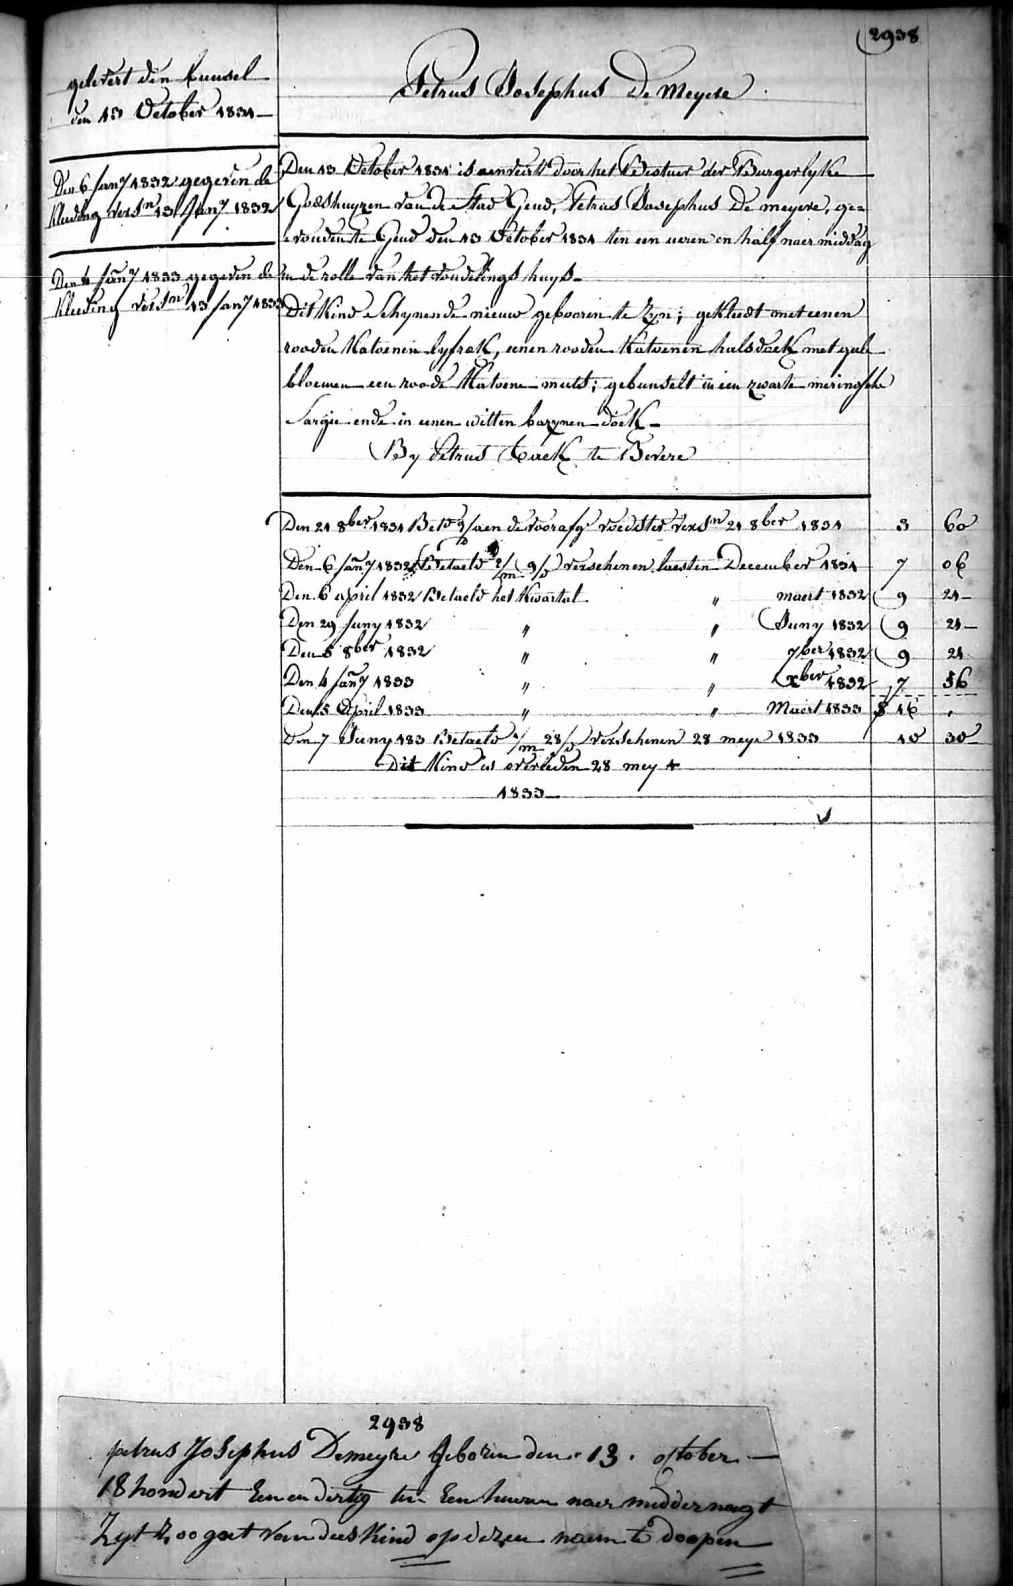 2938
gelevert den bunsel
den 13 October 1831
Petrus Josephus De Meyere
Den 6 Jany 1832 gegeven de
kleeding versn 13 Jany 1832
Den 4 Jany 1833 gegeven de
kleeding versn 13 Jany 1833
Den 13 October 1831 is aenveirt door het Bestuer der Burgerlyke
Godshuyzen van de Stad Gend, Petrus Josephus De meyere, ge=
vonden te Gend den 13 October 1831 ten een ueren en half naer middag
in de rolle van het vondelings huys
Dit kind schynende nieuw gebooren te zyn; gekleedt met eenen
rooden katoenen lyfrok, eenen rooden katoenen halsdoek met geele
bloemen een roode katoene muts; gebunselt in een zwarte
Sargie ende in eenen witten bazynen doek
By Petrus te Bevere
Den 21 8ber 1831 Bet aen de voorafg voedster versn 21 8ber 1831 3 60
Den 6 Jany 1832 Betaeld 2/m 9/d verschenen laesten December 1831 7 06
Den 6 april 1832 Betaeld het kwartal " maert 1832 9 21
Den 29 Juny 1832 " " Juny 1832 9 21
Den 5 8ber 1832 " " 7ber 1832 9 21
Den 4 Jany 1833 " " xber 1832 7 56
Den 5 April 1833 " " Maert 1833 16 "
Den 7 Juny 183 Betaeld 1/m 28/d verschenen 28 meye 1833 10 30
Dit kind is overleden 28 mey
1833
2938
petrus Josephus Demeyre Geboren den 13. october
18 hondert Een en dertig ten Een huren naer middernagt
Zyt zoo goet van dees kind op dezen naem te doopen